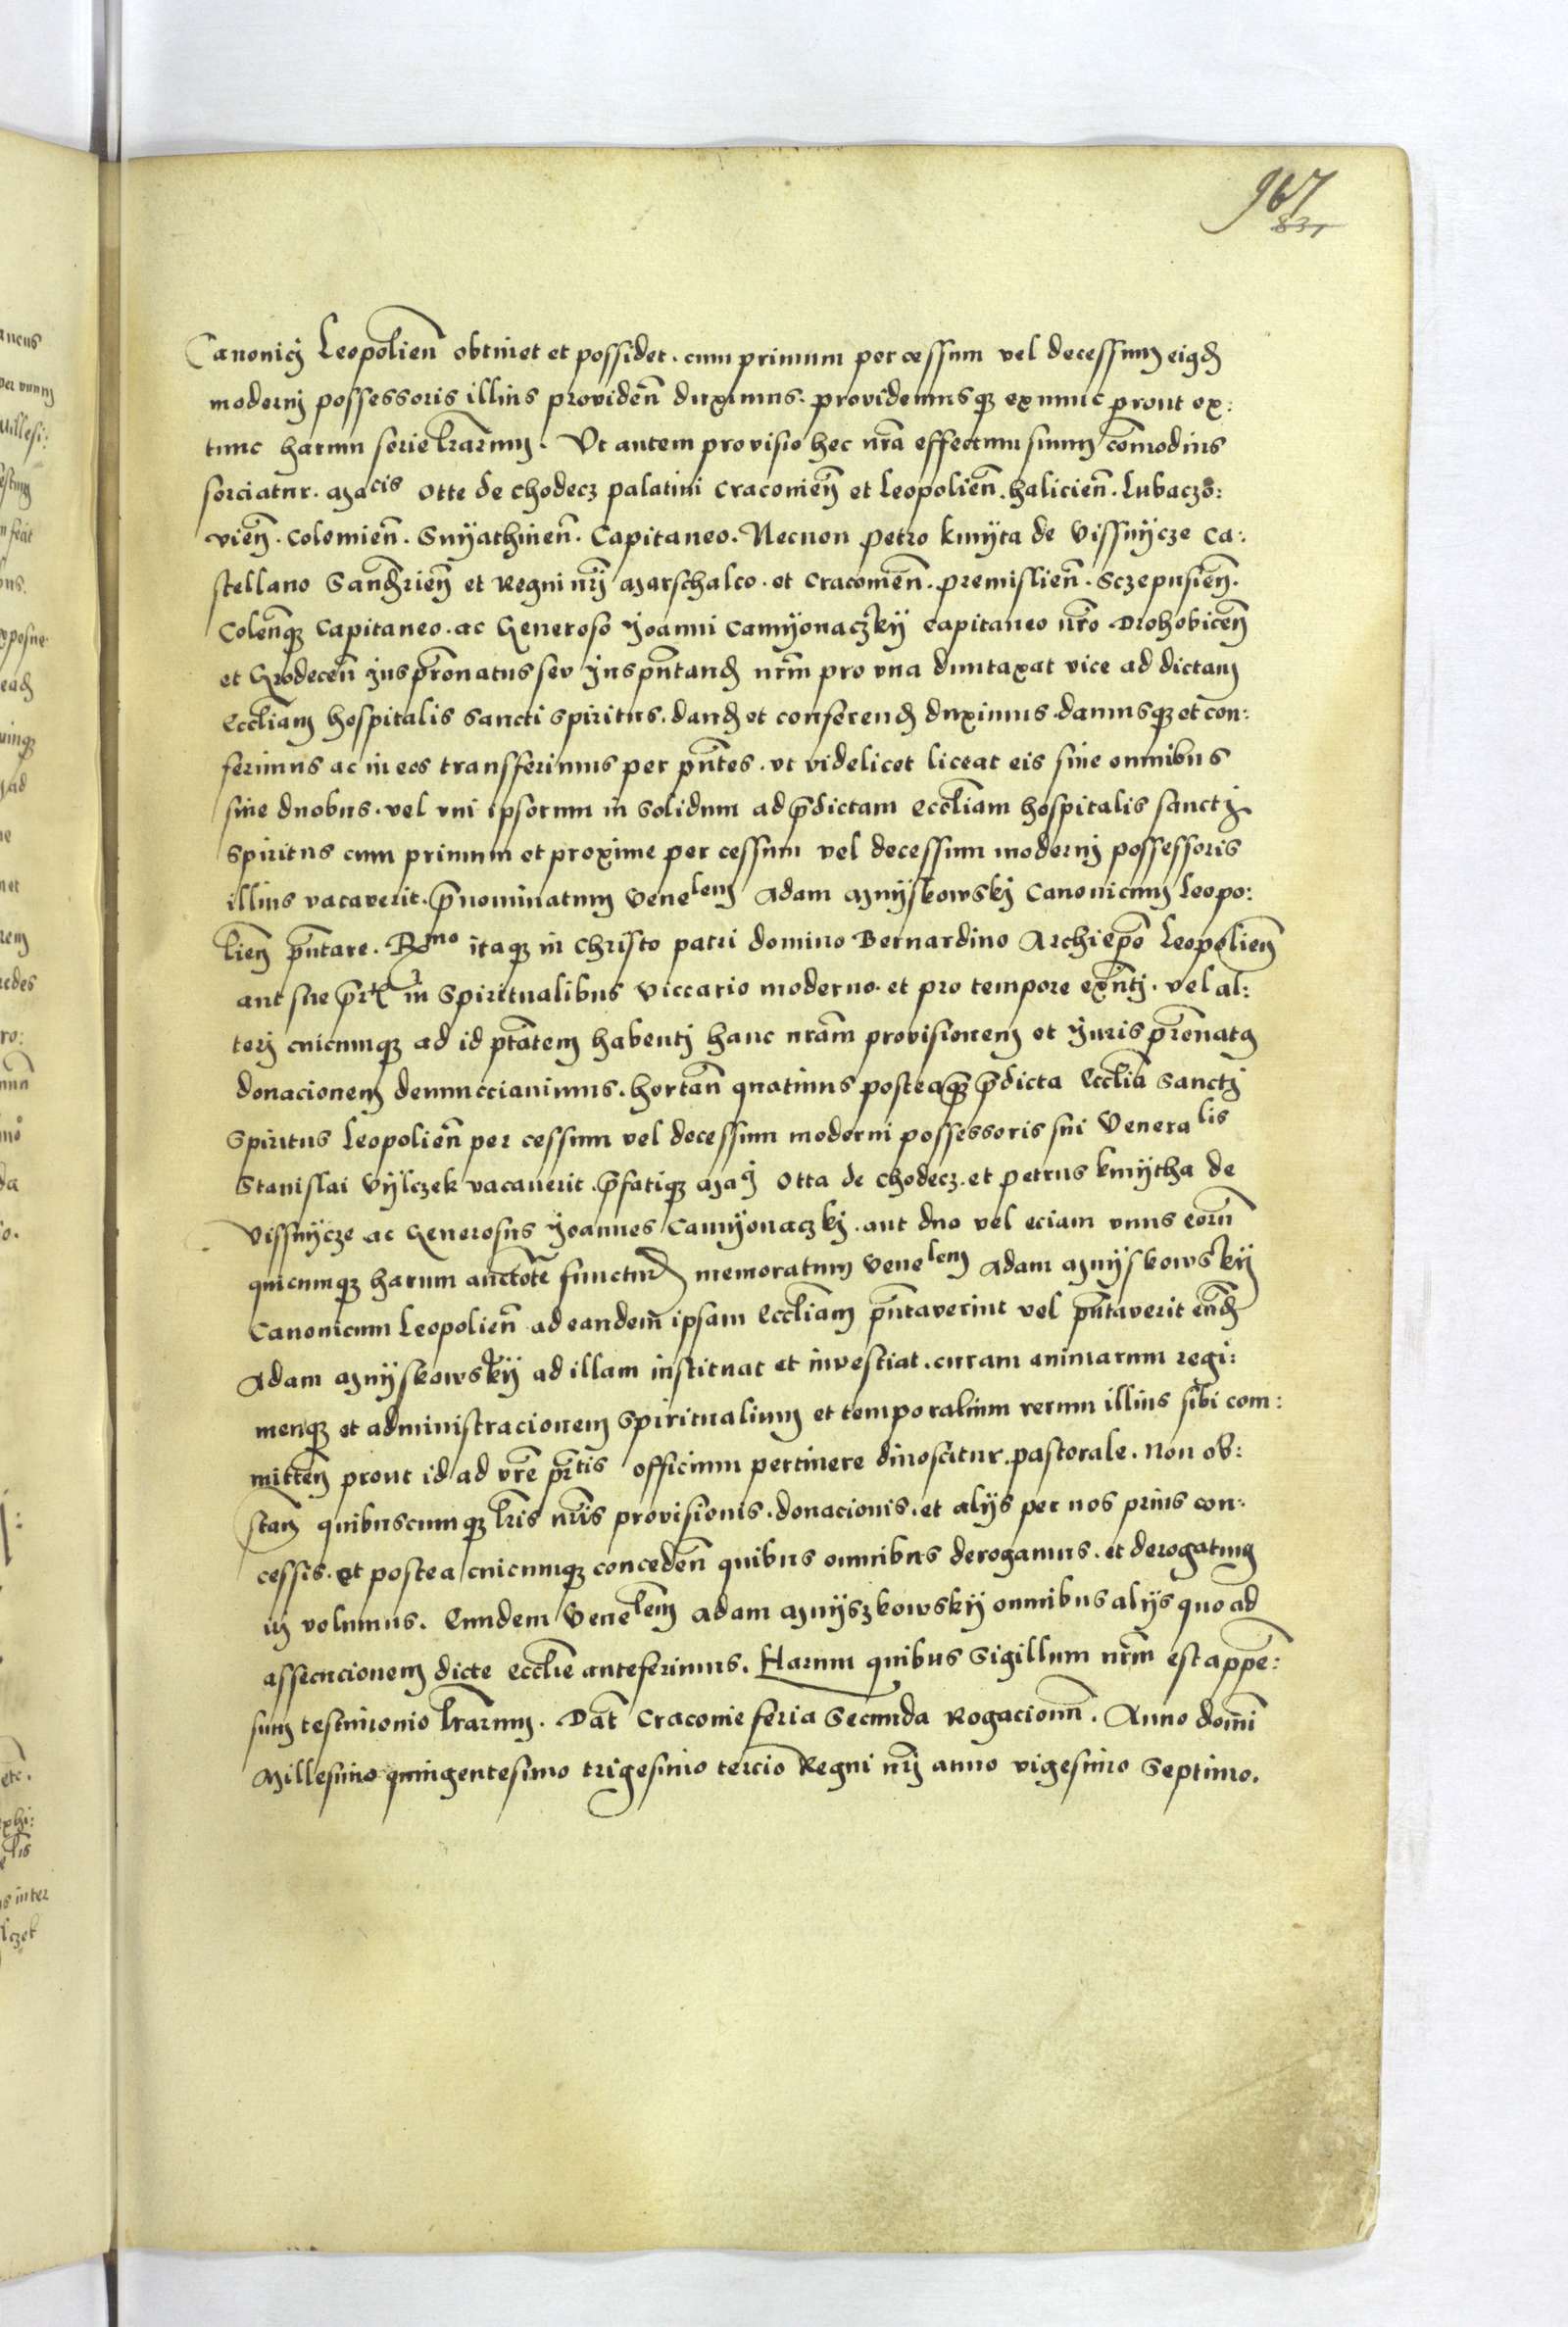 967
831
Canonicj Leopolien̄ obtinet et possidet. cum primum per cessum vel decessum eigd̄
modernj possessoris illius providen̄ duximus. providemusqꝫ ex nunc prout ex:
tunc harum serie lr̄arum. Ut autem provisio hec nr̄a effectum suum com̄odius
sorciatur. Macis Otte de Chodecz palatini Cracovien̄ et Leopolien̄. halicien̄. Lubaczo:
vien̄. Colomien̄. Snyathinen̄. Capitaneo. Necnon Petro kmyta de Vissnycze Ca:
stellano Sandr̄ien̄ et Regni nr̄j Marschalco. et Cracovien̄. premislien̄. Sczepusien̄.
Colen̄qꝫ Capitaneo. ac Generoso Joanni Camyonaczky capitaneo nr̄o Drohobicen̄
et Grodecen̄ Jus pr̄onatus seu Jus pn̄tand̄ nr̄m pro una dumtaxat vice ad dictam
Eccl̄iam hospitalis Sancti Spiritus. dand̄ et conferend̄ duximus. damusqꝫ et con:
ferimus ac in eos transferimus per pn̄tes. ut videlicet liceat eis sive omnibus
sive duobus. vel uni ipsorum in solidum ad p̄dictam eccl̄iam hospitalis sanctj
Spiritus cum primum et proxime per cessum vel decessum modernj possessoris
illius vacaverit. p̄nominatum Venelem Adam Myskowskj Canonicum Leopo:
lien̄ pn̄tare. Rmo itaqꝫ in Christo patri domino Bernardino Archiep̄o Leopolien̄
aut sue pr̄tis in Spiritualibus Viccario moderno. et pro tempore exn̄tj. vel al:
terj cuicumqꝫ ad id pt̄atem habentj hanc nr̄am provisionem et Juris pr̄onatus
donacionem denuncciavimus. hortan̄ quatinus posteaqꝫ p̄dicta Eccl̄ia Sanctj
Spiritus Leopolien̄ per cessum vel decessum moderni possessoris sui Veneralis
Stanislai Vylczek vacaverit. p̄fatiqꝫ Macj Otta de Chodecz. et Petrus kmytha de
Vissnycze ac Generosus Joannes Camyonaczkj. aut duo vel eciam unus eorum̄
quicumqꝫ harum auctōte functur̄ memoratum Venelem Adam Myskowsky
Canonicum Leopolien̄ ad eandem̄ ipsam Eccl̄iam pn̄taverint vel pn̄taverit eund̄
Adam Myskowsky ad illam instituat et investiat. curam animarum regi:
menqꝫ et administracionem Spiritualium et temporalium rerum illius sibi com:
mitten̄ prout id ad vr̄e pr̄tis officium pertinere dinoscitur pastorale. Non ob:
stan̄ quibuscumqꝫ lr̄is nr̄is provisionis. donacionis. et alijs per nos prius con:
cessis. et postea cuicumqꝫ conceden̄ quibus omnibus derogamus. et derogatum
iri volumus. Eundem Venelem Adam Myszkowsky omnibus alijs quo ad
assecucionem dicte eccl̄ie anteferimus. Harum quibus Sigillum nr̄m est appen̄:
sum testimonio lr̄arum. Dat̄ Cracovie feria Secunda Rogacionum̄. Anno domi̅
Millesimo quingentesimo trigesimo tercio Regni nr̄j anno vigesimo Septimo.